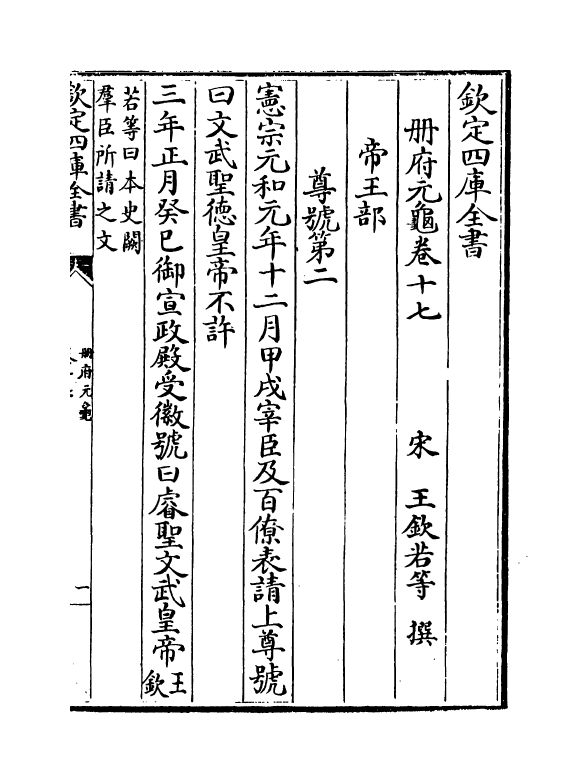 欽定四庫全書
册府元龜卷十七　宋　王欽若等　撰
帝王部
尊號第二
憲宗元和元年十二月甲戌宰臣及百僚表請上尊號
曰文武聖德皇帝不許
三年正月癸巳御宣政殿受徽號曰睿聖文武皇帝王欽
若等曰本史闕
羣臣所請之文
欽定四庫全書
册府元龜
一